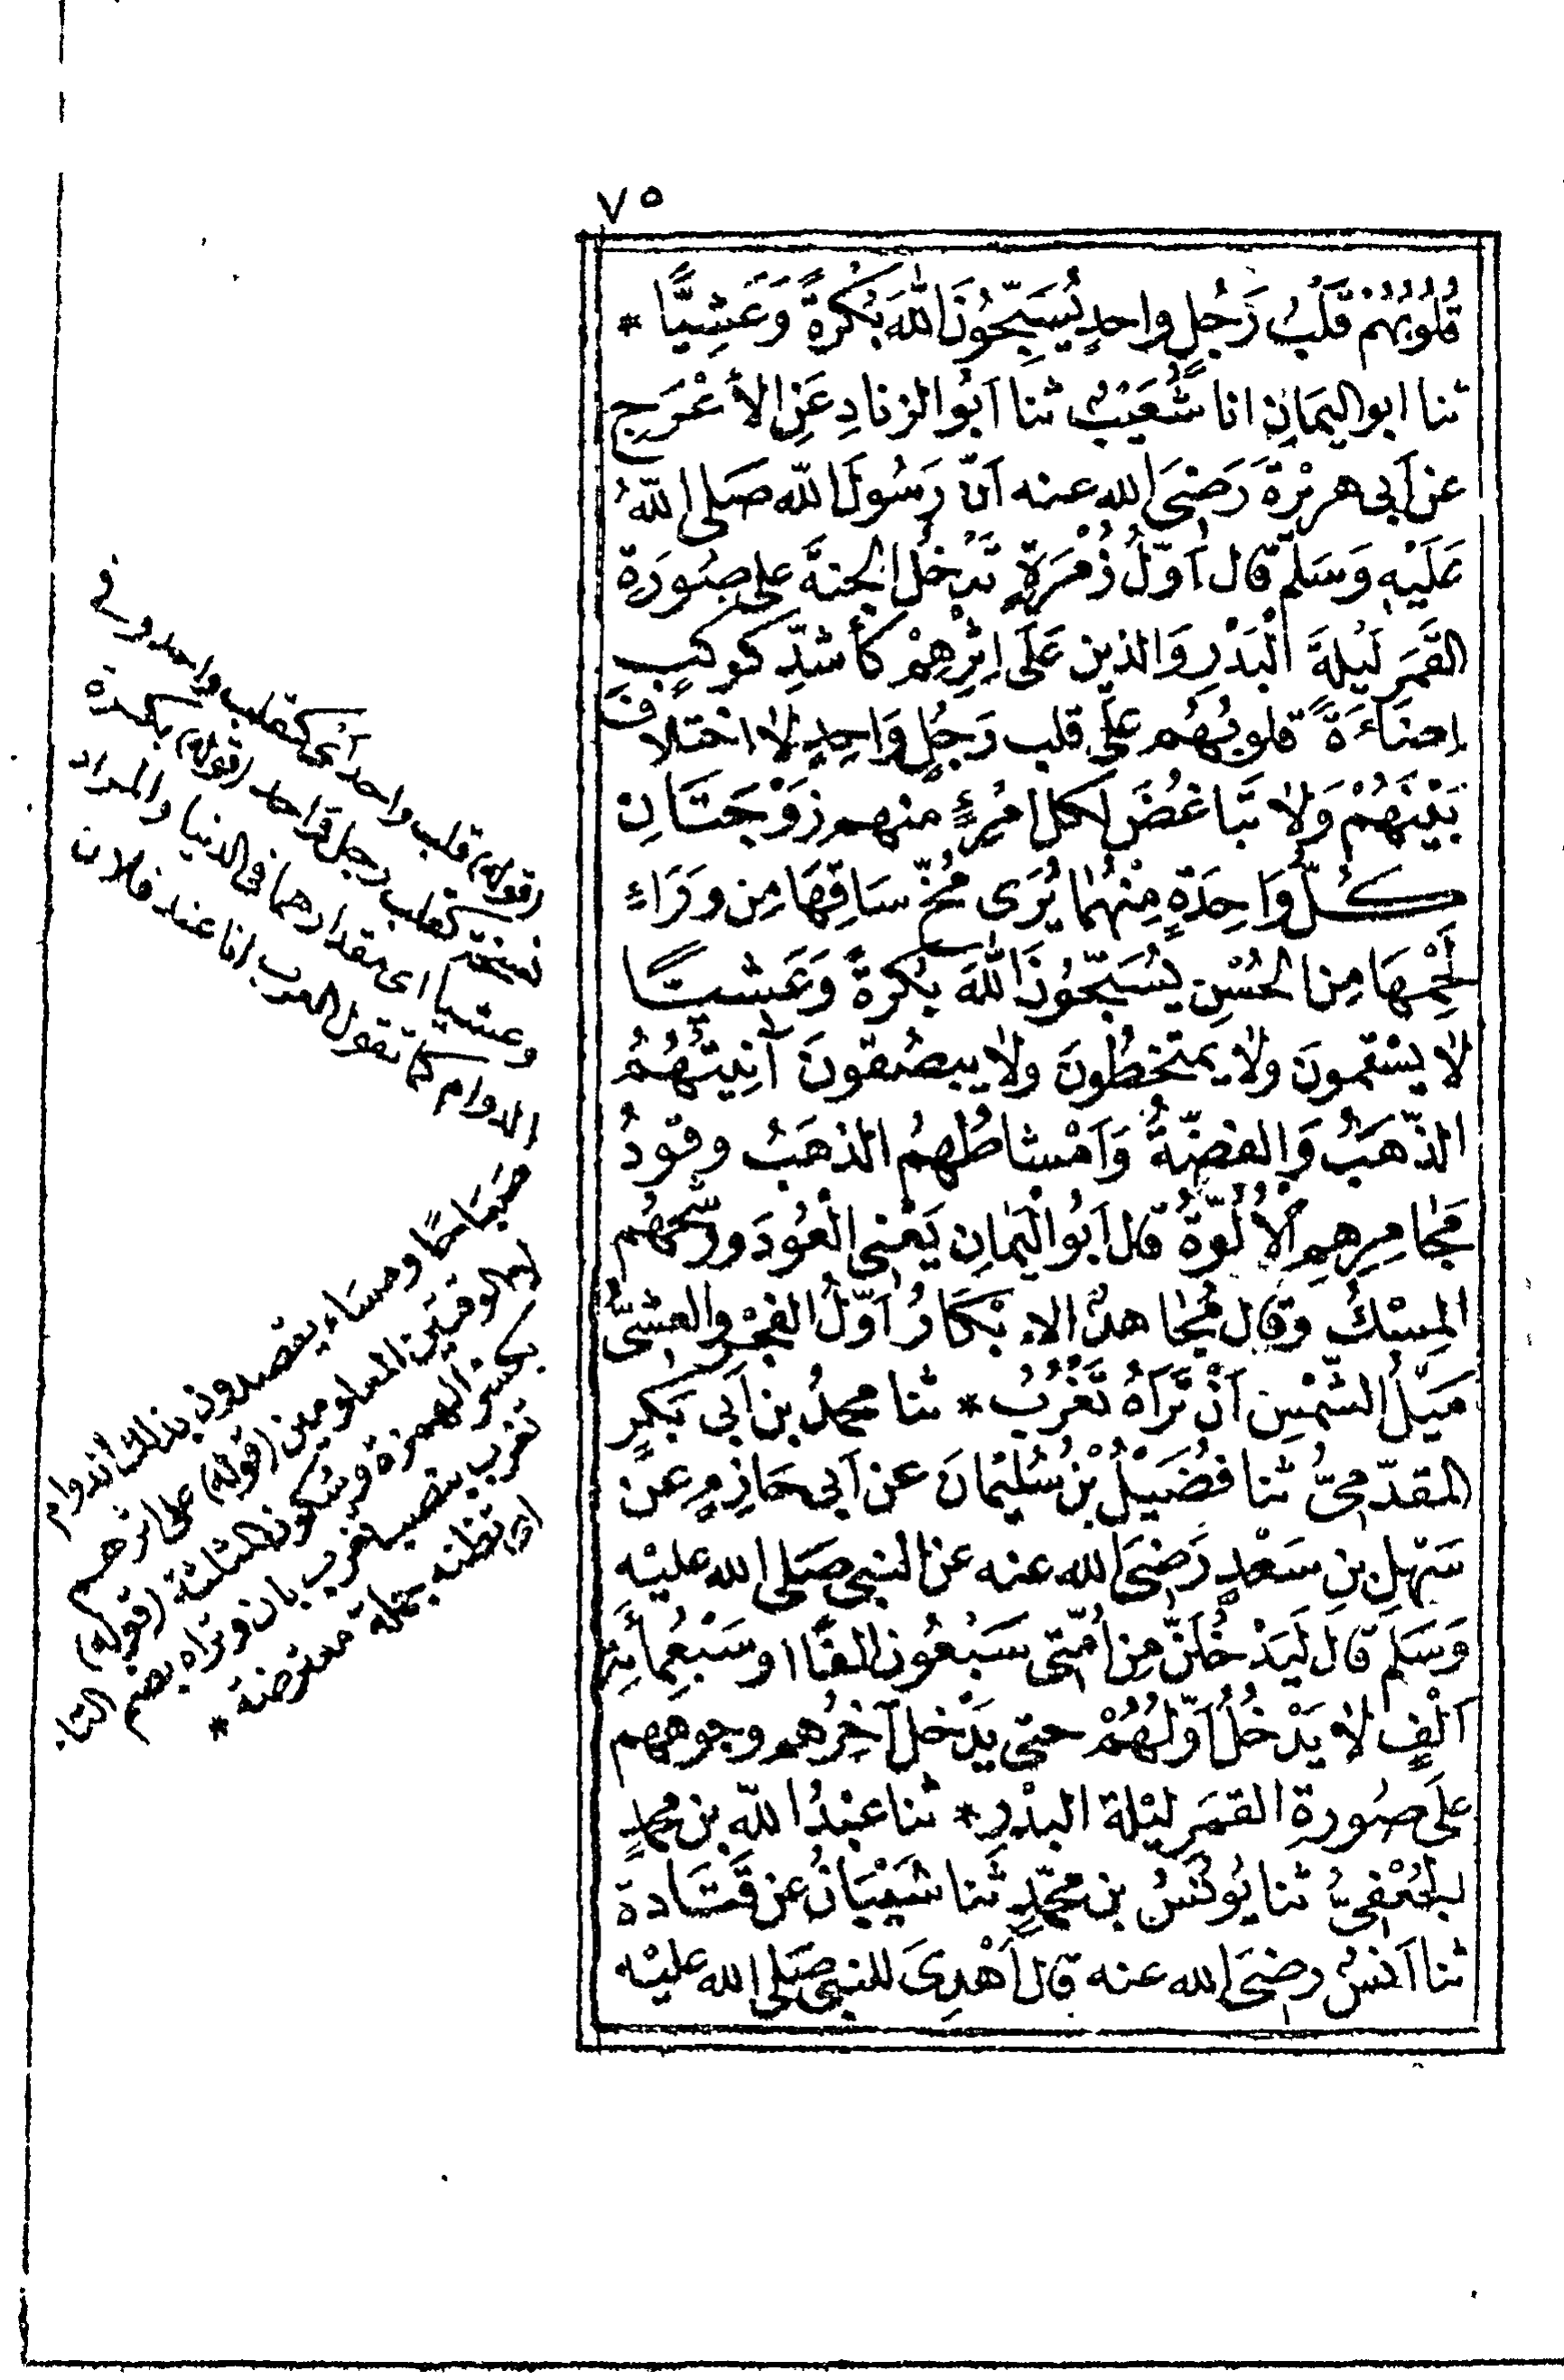 ٧٥
قُلُوبُهُمْ قَلْبُ رَجُلٍ واحدٍ يُسَبِّحُونَ اللهَ بُكْرَةً وَعَشِيًّا *
ثنا ابو اليمَانِ انا شُعَيْبٌ ثنا اَبُو الزنادِ عَنِ الأعْرَجِ
عن اَبى هريْرةَ رَضىَ الله عنه اَنّ رَسُولَ اللّه صَلى اللّهُ
عَلَيْهِ وَسَلمَ قال اَوّلُ زُمْرَةٍ تَدْخلُ الجنةَ على صُورَةِ
القمَرِ لَيْلةَ الْبَدْرِ وَالذين عَلَى اِثْرِهِمْ كأشدِّ كوكبٍ
اِضَاءَةً قلوبُهُم علَى قلب رَجُلٍ وَاحِدٍ لا اختلافَ
بَيْنَهُمْ وَلا تَبَاغُضَ لكل امْرِئٍ منهم زَوْجَتَانِ
كُلُّ وَاحِدَةٍ مِنْهُمَا يُرَى مُخُّ سَاقِهَا مِن وَرَاءِ
لَحْمِهَا مِنَ الحُسْنِ يُسَبّحُونَ اللهَ بُكْرَةً وَعَشيًّا
لا يسْقمونَ ولا يمتخطُونَ ولا يبصُقونَ آنِيَتُهُمُ
الذّهَبُ وَالفضّةُ وَاَمْشاطُهمُ الذهَبُ وقودُ
مَجَامِرِهِم الأُلُوّةُ قال اَبُو الْيَمانِ يَعْنى الْعُودَ ورَشْحُهُم
المِسْكُ وَقال مُجَاهدٌ الاِبْكَارُ اَوّلُ الفجْرِ والعشىُّ
مَيْلُ الشّمْسِ اَنْ تَرَاهُ تَغْرُبُ * ثنا محمدُ بن اَبى بَكرٍ
المقدّمىُّ ثنا فُضَيْلُ بْنُ سُلَيْمَانَ عن اَبى حَازِمٍ عنْ
سَهْلِ بنِ سَعْدٍ رَضىَ الله عنه عن النبى صَلى الله عليْه
وَسَلمَ قال لَيَدْخُلَنّ مِن اُمّتى سَبْعُون الفًا اوسَبْعُمِائَةِ
اَلْفٍ لا يَدْخُلُ اَوّلُهُمْ حتى يَدْخل آخِرُهم وجوههم
علَى صُورةِ القمَرِ ليْلة البدْرِ * ثنا عبْدُ اللّه بن محمدٍ
الجُعْفِىُّ ثنا يُونُسُ بن محمّدٍ ثَنا شَيْبَانُ عن قَتَادة
ثنا اَنسٌ رضىَ الله عنه قال اُهْدِىَ للنبى صَلى الله عليْه
(قوله) قلب واحد اَى كقلب واحد وفى
نسخة كقلب رجل وَاحد (قوله) بكرة
وعشيا اى مقدارهما فى الدنيا والمراد
الدوام كما تقول العرب انا عند فلان
صَبَاحًا ومسَاء يقصدون بذلك الدوام
لا الوقتين المعلومين (قوله) على اثرهم
بكسر الهمزة وسكون المثلثة (قوله)
تغرب بنصب تغرب بان وتراه بضم التاء
اى تظنه جملة معترضة *